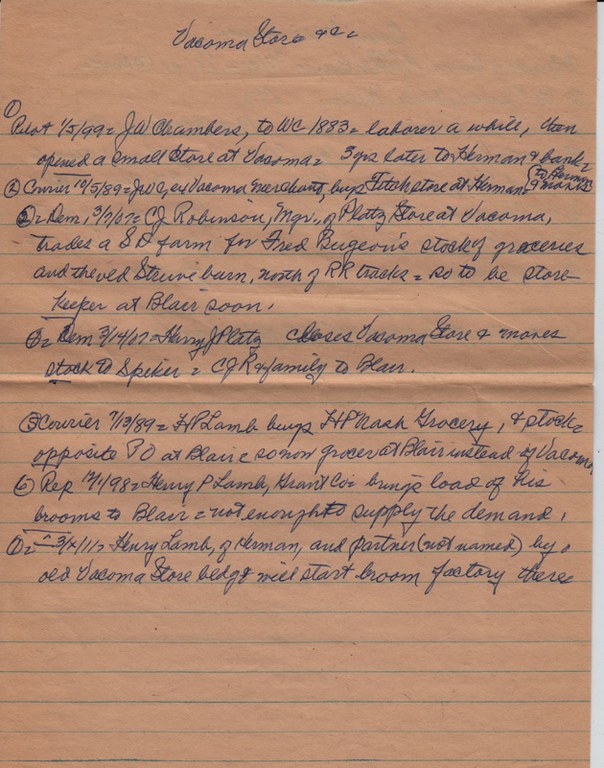 Vacoma Store &c =
①
Pilot 1/5/99 = JW Chambers, to WC 1883 = laborer a while, then
opened a small store at Vacoma = 3 yrs later to Herman & bank =
② Courier 10/5/89 = JWC, ex Vacoma merchant, buys store at Herman = (to Herman
9 mos
② = Dem, 3/7/07 = CJ Robinson, Mgr. of Platz Store at Vacoma,
trades a SD farm for Fred stock of groceries
and the old Struve barn, north of RR tracks = so to be store
keeper at Blair soon.
③ = Dem 3/14/07 = Harry J Platz closes Vacoma Store & moves
stock to Spiker = CJR & family to Blair.
⑤ Courier 7/13/89 = HP Lamb buys HP Nash Grocery, & stock =
opposite PO at Blair = so now grocer at Blair instead of Vacoma
⑥ Rep 12/1/98 = Henry P Lamb, Grant Co = brings load of his
brooms to Blair = not enough to supply the demand.
⑦ = " 3/4/ = Henry Lamb, of Herman, and partner (not named) buy
old Vacoma Store bldg & will start broom factory there